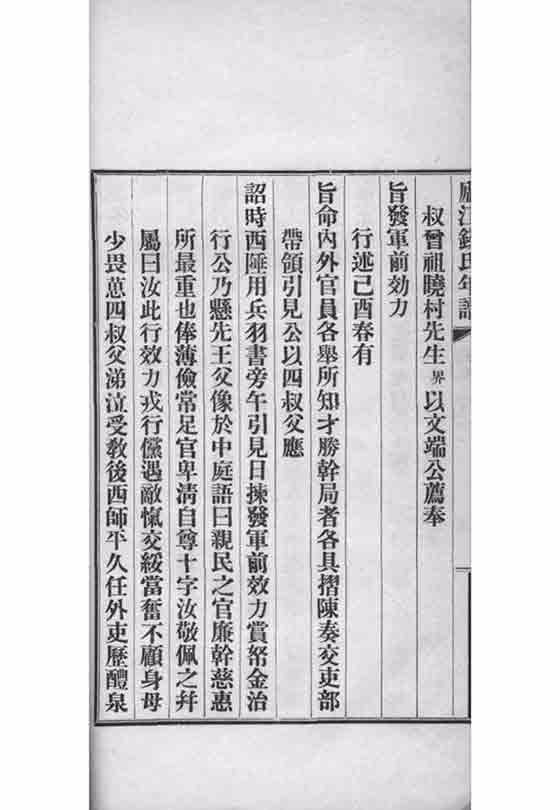 廬江錢氏年譜
叔曾祖曉村先生界以文端公薦奉
旨發軍前効力
行述己酉春有
旨命內外官員各舉所知才勝幹局者各具摺陳奏交吏部
帶領引見公以四叔父應
詔時西陲用兵羽書旁午引見日揀發軍前效力賞帑金治
行公乃懸先王父像於中庭語曰親民之官廉幹慈惠
所最重也俸薄儉常足官卑清自尊十字汝敬佩之幷
屬曰汝此行效力戎行儻遇敵愾交綏當奮不顧身毋
少畏葸四叔父涕泣受教後西師平久任外吏歷醴泉